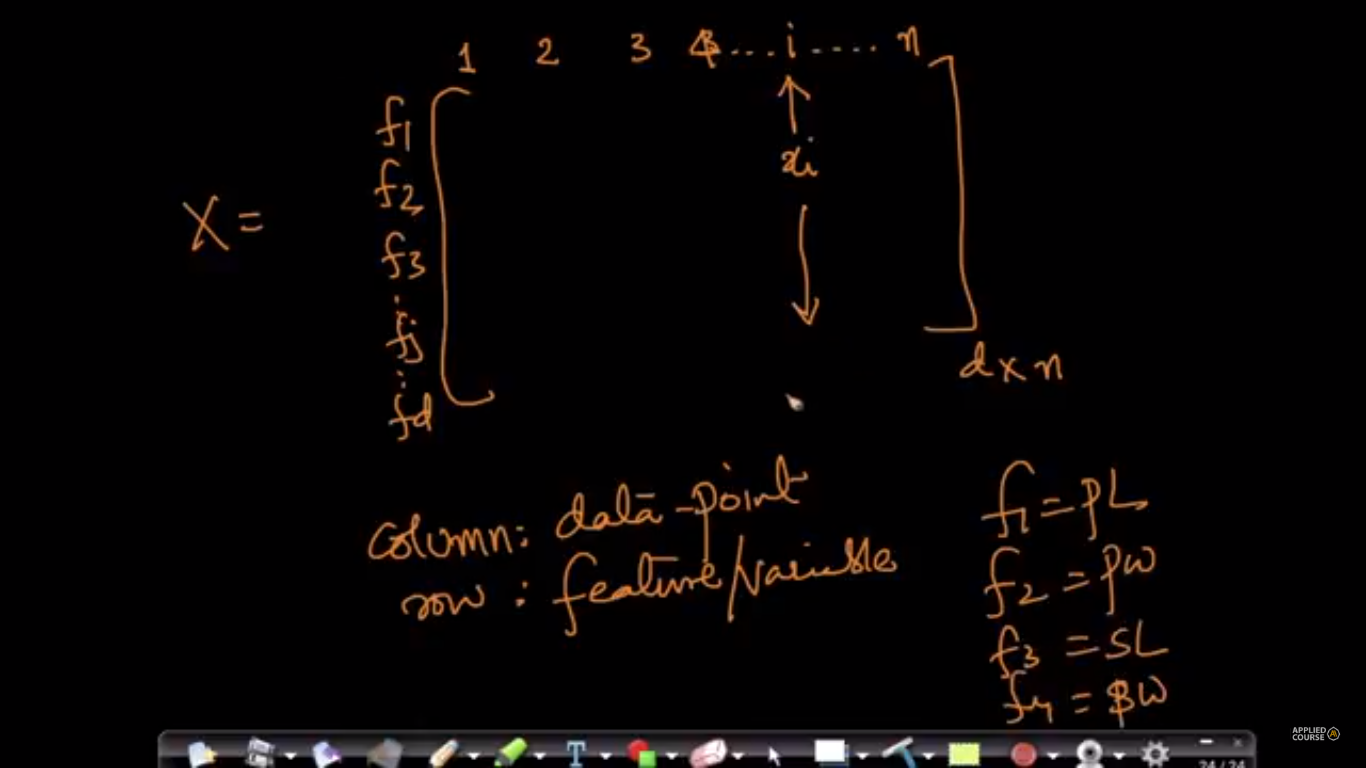 1 2 3 4 ... i .... n
f1
f2
X =
xi
f3
:
fj
:
fd
d x n
column: data-point
row: feature/variable
f1 = PL
f2 = PW
f3 = SL
f4 = SW
T
24 / 24
APPLIED
COURSE